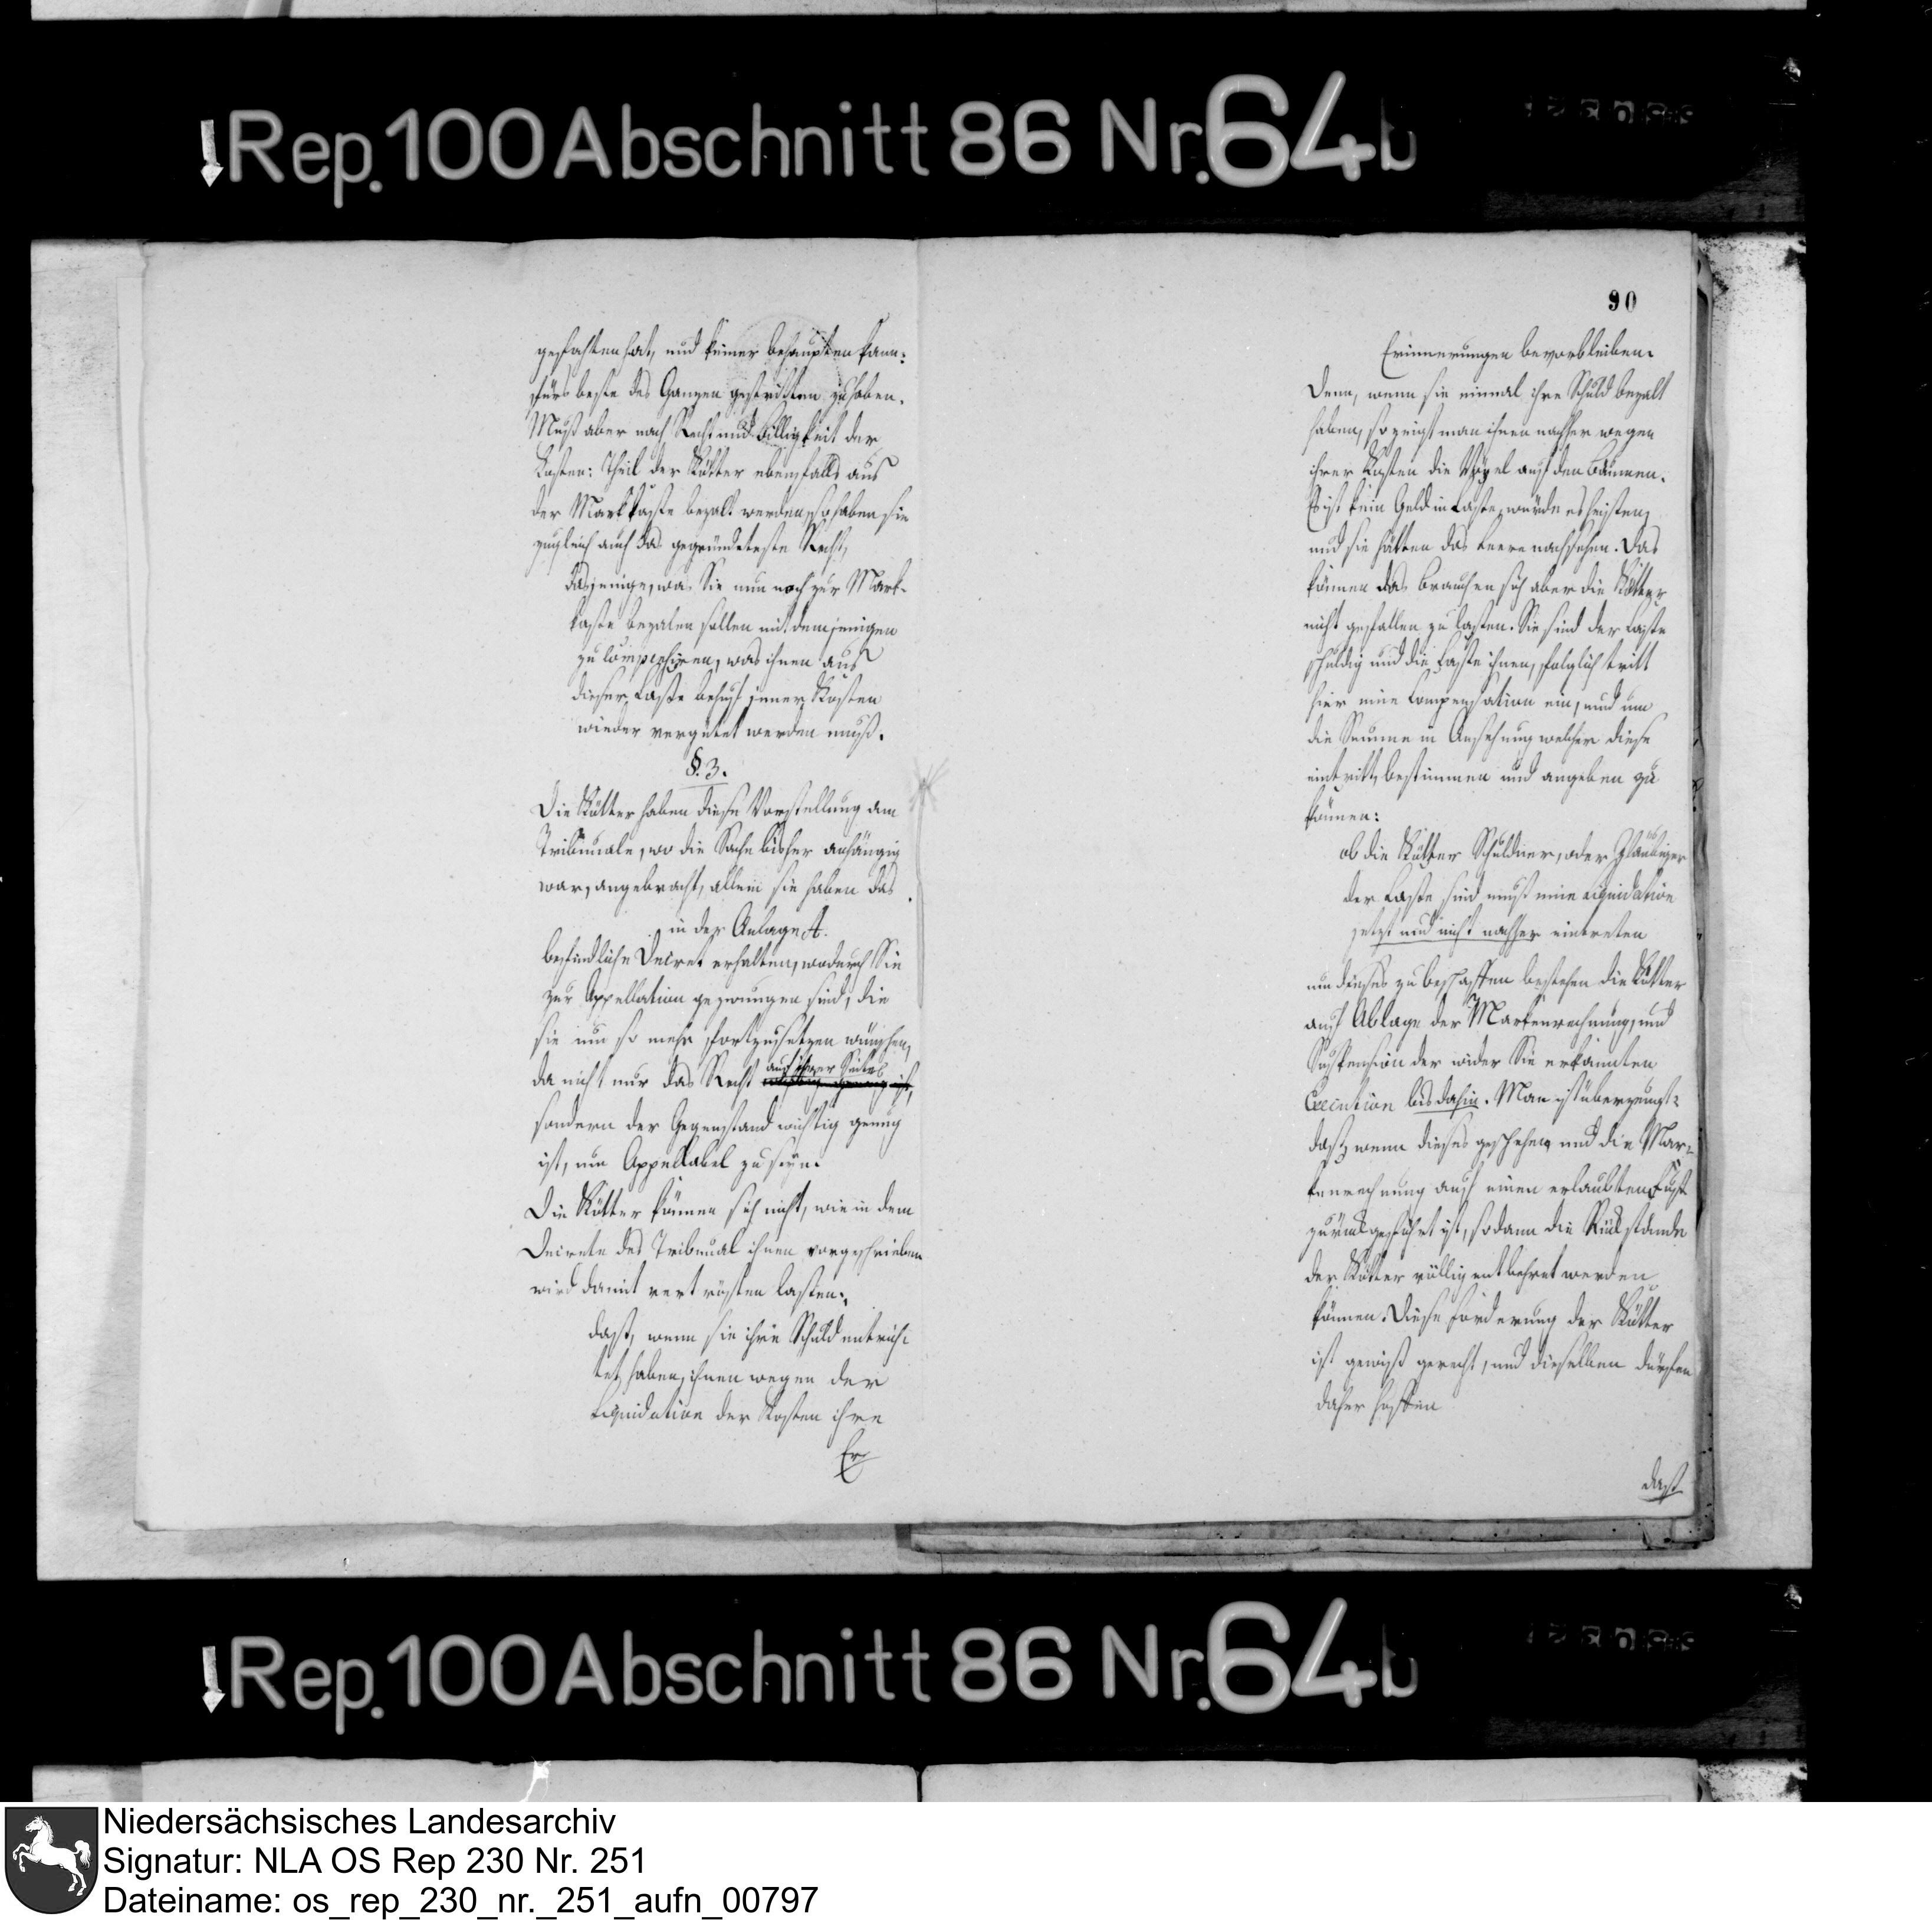 Rep. 100 Abschnitt 86 Nr. 64b
gefochten hat, und keiner behaupten kann:
fürs beste des Ganzen gestritten zu haben.
Muß aber nach Recht und Billigkeit der
Kosten: Theil der Kötter ebenfalls aus
der Markkasse bezalt werden, so haben sie
zugleich auch das gegründeteste Recht,
dasjenige, was Sie nun noch zur Mark-
kasse bezalen sollen mit demjenigen
zu compensiren, was ihnen aus
dieser Casse behuf jener Kosten
wieder vergütet werden muß.
§. 3.
Die Kötter haben diese Vorstellung am
Tribunale, wo die Sache bisher anhängig
war, angebracht, allein sie haben das
in der Anlage A.
befindliche Decret erhalten, wodurch Sie
zur Appellation gezwungen sind, die
sie um so mehr fortzusetzen wünschen,
da nicht nur das Recht auf ihrer Seite
sondern der Gegenstand wichtig genug
ist, um Appellabel zu seyn.
Die Kötter können sich nicht, wie in dem
Decrete des Tribunal ihnen vorgeschrieben
wird damit vertrösten lassen:
daß, wenn sie ihre Schuld entrich-
tet haben, ihnen wegen der
Liquidation der Kosten ihre
Er
90
Erinnerungen bevorbleiben.
Denn, wenn sie einmal ihre Schuld bezalt
haben, so zeigt man ihnen nachher wegen
ihrer Kosten die Vögel auf den Bäumen.
Es ist kein Geld in Casse, würde es heissen,
und sie hätten das Leere nachsehen. Das
können das brauchen sich aber die Kötter
nicht gefallen zu lassen. Sie sind der Casse
schuldig und die Casse ihnen, folglich tritt
hier eine Compensation ein, und um
die Summe in Ansehung welcher diese
eintritt, bestimmen und angeben zu
können:
ob die Kötter Schuldner, oder Gläubiger
der Casse sind muß eine Liquidation
jetzt und nicht nachher eintreten
um dieses zu beschaffen bestehen die Kötter
auf Ablage der Markenrechnung, und
Suspension der wider Sie erkannten
Execution bis dahin. Man ist überzeugt:
daß, wenn dieses geschehen, und die Mar-
kenrechnung auf einen erlaubten Fuß
zurückgeführt ist, sodann die Rückstände
der Kötter völlig entbehret werden
können. Diese Forderung der Kötter
ist gewiß gerecht, und dieselben dürfen
daher hoffen
daß
Rep. 100 Abschnitt 86 Nr. 64b
Niedersächsisches Landesarchiv
Signatur: NLA OS Rep 230 Nr. 251
Dateiname: os_rep_230_nr._251_aufn_00797